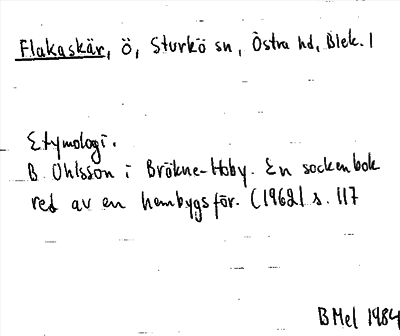 Flakaskär, Ö, Sturkö sn, Östra hd, Blek. l
Etymologi.
B. Ohlsson i Bräkne-Hoby. En sockenbok
red av en hembygsför. (1962) s. 117
B Mel 1984